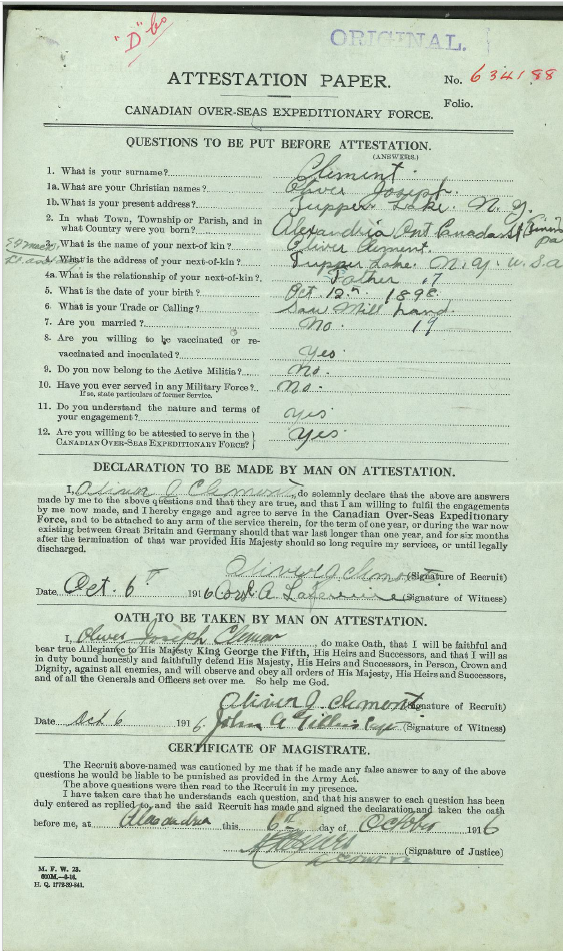 "D" bo
ORIGINAL.
ATTESTATION PAPER.
No. 634188
Folio.
CANADIAN OVER-SEAS EXPEDITIONARY FORCE.
QUESTIONS TO BE PUT BEFORE ATTESTATION.
(ANSWERS.)
1. What is your surname? Clement.
1a. What are your Christian names? Oliver Joseph.
1b. What is your present address? Tupper Lake. N.Y.
2. In what Town, Township or Parish, and in
what Country were you born? Alexandria Ont Canada
What is the name of your next-of-kin? Oliver Clement.
What is the address of your next-of-kin? Tupper Lake. N.Y. U.S.A
4a. What is the relationship of your next-of-kin? Father 17
5. What is the date of your birth? Oct 12th 1898
6. What is your Trade or Calling? Saw Mill hand.
7. Are you married? No. 19
8. Are you willing to be vaccinated or re-
vaccinated and inoculated? Yes.
9. Do you now belong to the Active Militia? No.
10. Have you ever served in any Military Force? No.
If so, state particulars of former Service.
11. Do you understand the nature and terms of
your engagement? Yes
12. Are you willing to be attested to serve in the
CANADIAN OVER-SEAS EXPEDITIONARY FORCE? Yes.
DECLARATION TO BE MADE BY MAN ON ATTESTATION.
I, Oliver J Clement, do solemnly declare that the above are answers
made by me to the above questions and that they are true, and that I am willing to fulfil the engagements
by me now made, and I hereby engage and agree to serve in the Canadian Over-Seas Expeditionary
Force, and to be attached to any arm of the service therein, for the term of one year, or during the war now
existing between Great Britain and Germany should that war last longer than one year, and for six months
after the termination of that war provided His Majesty should so long require my services, or until legally
discharged.
(Signature of Recruit)
Date Oct. 6 1916 (Signature of Witness)
OATH TO BE TAKEN BY MAN ON ATTESTATION.
I, Oliver Joseph Clement, do make Oath, that I will be faithful and
bear true Allegiance to His Majesty King George the Fifth, His Heirs and Successors, and that I will as
in duty bound honestly and faithfully defend His Majesty, His Heirs and Successors, in Person, Crown and
Dignity, against all enemies, and will observe and obey all orders of His Majesty, His Heirs and Successors,
and of all the Generals and Officers set over me. So help me God.
Oliver J. Clement (Signature of Recruit)
Date Oct 6 1916 John A Gillis (Signature of Witness)
CERTIFICATE OF MAGISTRATE.
The Recruit above-named was cautioned by me that if he made any false answer to any of the above
questions he would be liable to be punished as provided in the Army Act.
The above questions were then read to the Recruit in my presence.
I have taken care that he understands each question, and that his answer to each question has been
duly entered as replied to, and the said Recruit has made and signed the declaration and taken the oath
before me, at Alexandria this 6th day of October 1916
(Signature of Justice)
M. F. W. 23.
600M.—8-16.
H. Q. 1772-39-841.